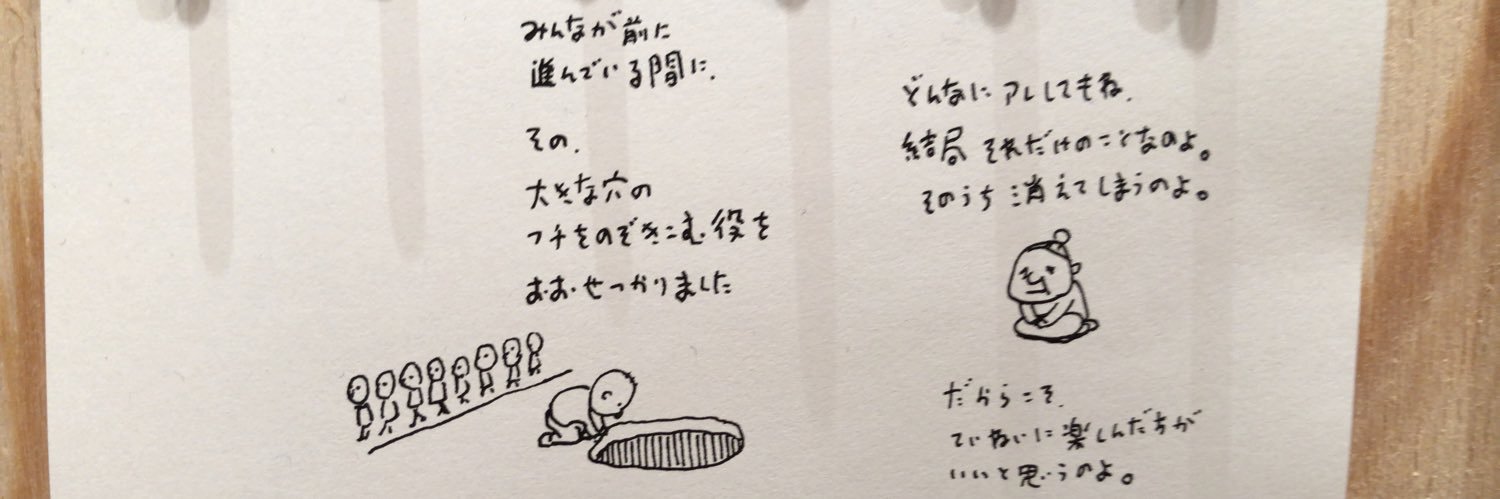 みんなが前に
進んでいる間に、
その、
大きな穴の
フチをのぞきこむ役を
おおせつかりました
どんなにアレしてもね、
結局それだけのことなのよ。
そのうち消えてしまうのよ。
だからこそ、
ていねいに楽しんだ方が
いいと思うのよ。